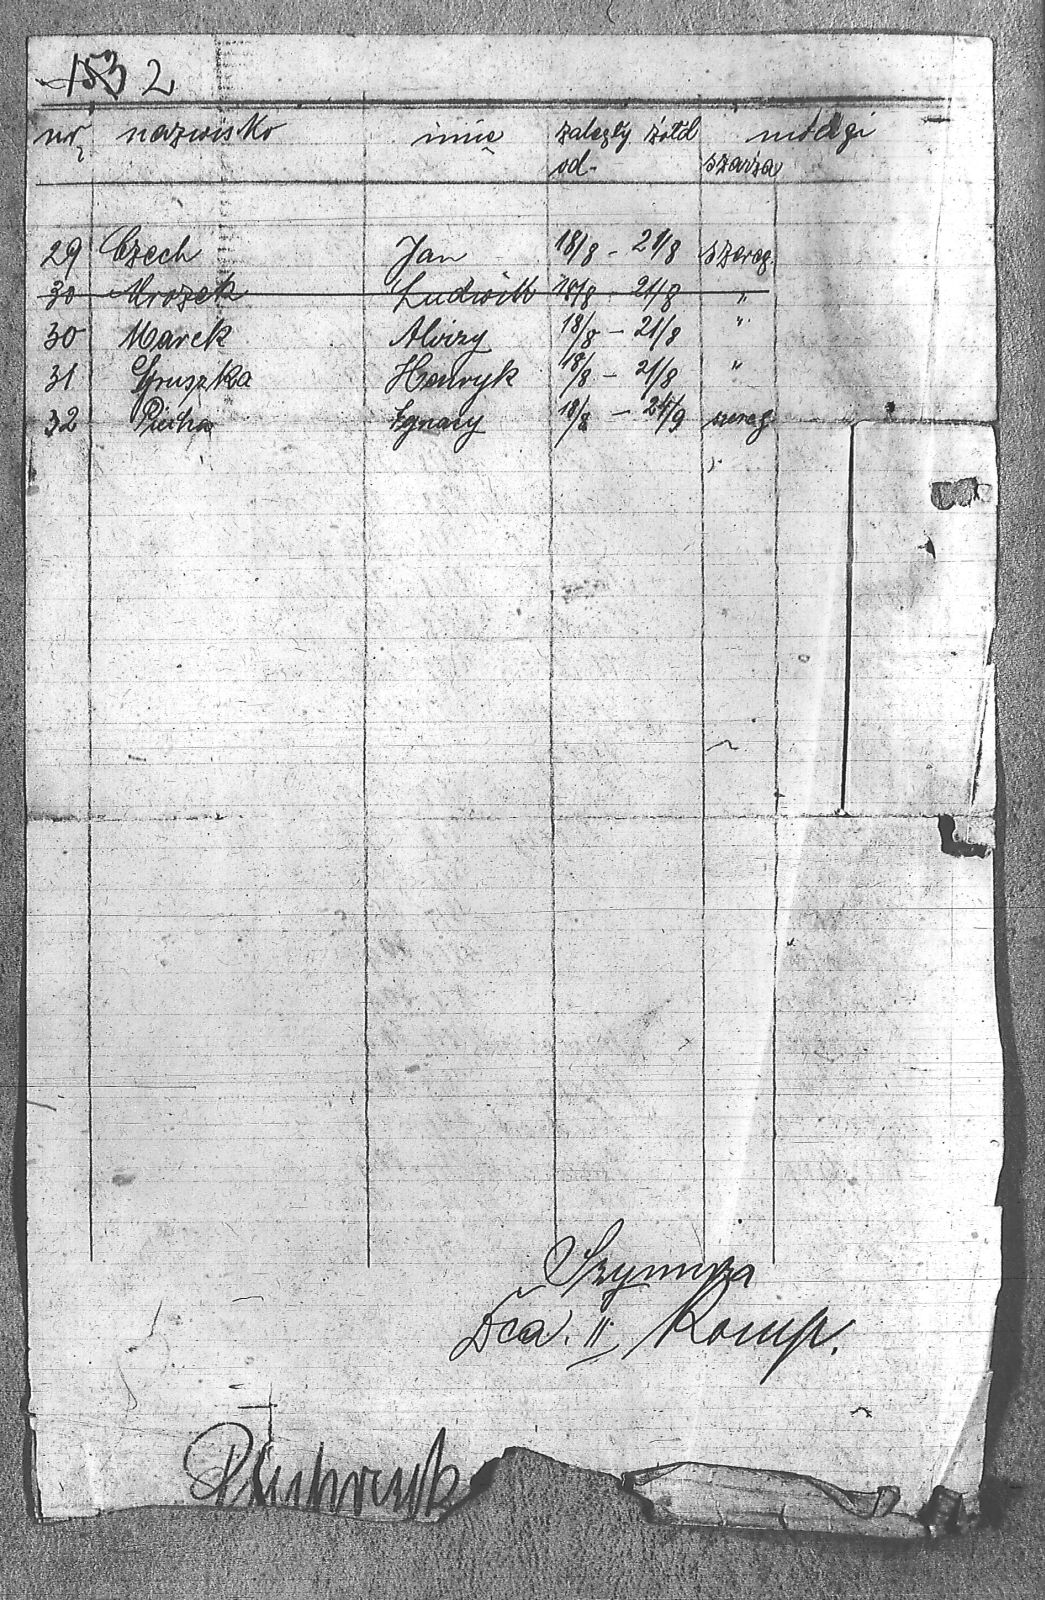 153 2
nr. nazwisko imię zaległy żołd uwagi
od- szarża
29 Czech Jan 18/8 - 21/8 szereg.
30 Mrozek Ludwik 18/8 - 21/8 "
30 Marek Alojzy 18/8 - 21/8 "
31 Gruszka Henryk 18/8 - 21/8 "
32 Piecha Ignacy 18/8 - 24/9 szereg.
Szymura
Dca. II Komp.